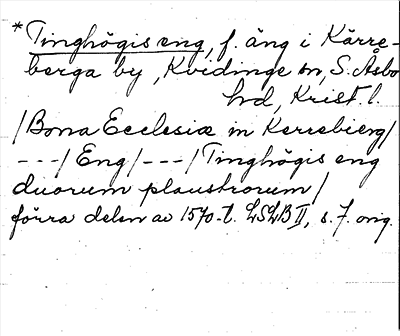 *Tinghögis eng, f. äng i Kärre-
berga by, Kvidinge sn, S. Åsbo
hd, Krist. l.
/Bona Ecclesiæ in Kerrebierg/
---/Eng/---/Tinghögis eng
duorum plaustrorum/
förra delen av 1570-t. LSLB II, s. 7. orig.